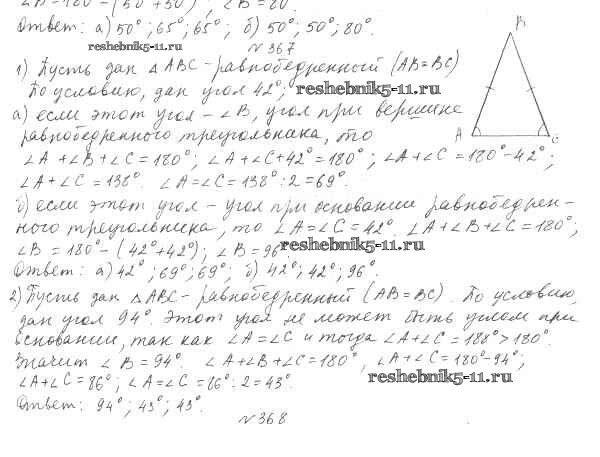 ∠A=180°-(50°+50°); ∠B=80°.
Ответ: а) 50°; 65°; 65°; б) 50°; 50°; 80°.
reshebnik5-11.ru
№367
1) Пусть дан △ABC - равнобедренный (AB=BC)
По условию, дан угол 42°; reshebnik5-11.ru
а) если этот угол - ∠B, угол при вершине
равнобедренного треугольника, то
∠A+∠B+∠C=180°; ∠A+∠C+42°=180°; ∠A+∠C=180°-42°;
∠A+∠C=138°. ∠A=∠C=138°:2=69°.
б) если этот угол - угол при основании равнобедрен-
ного треугольника, то ∠A=∠C=42°. ∠A+∠B+∠C=180°;
∠B=180°-(42°+42°); ∠B=96° reshebnik5-11.ru
Ответ: а) 42°; 69°; 69°; б) 42°; 42°; 96°.
2) Пусть дан △ABC - равнобедренный (AB=BC). По условию,
дан угол 94°. Этот угол не может быть углом при
основании, так как ∠A=∠C и тогда ∠A+∠C=188°>180°.
Значит ∠B=94°. ∠A+∠B+∠C=180°, ∠A+∠C=180°-94°;
∠A+∠C=86°; ∠A=∠C=86°:2=43°. reshebnik5-11.ru
Ответ: 94°; 43°; 43°.
№368
B
A
C